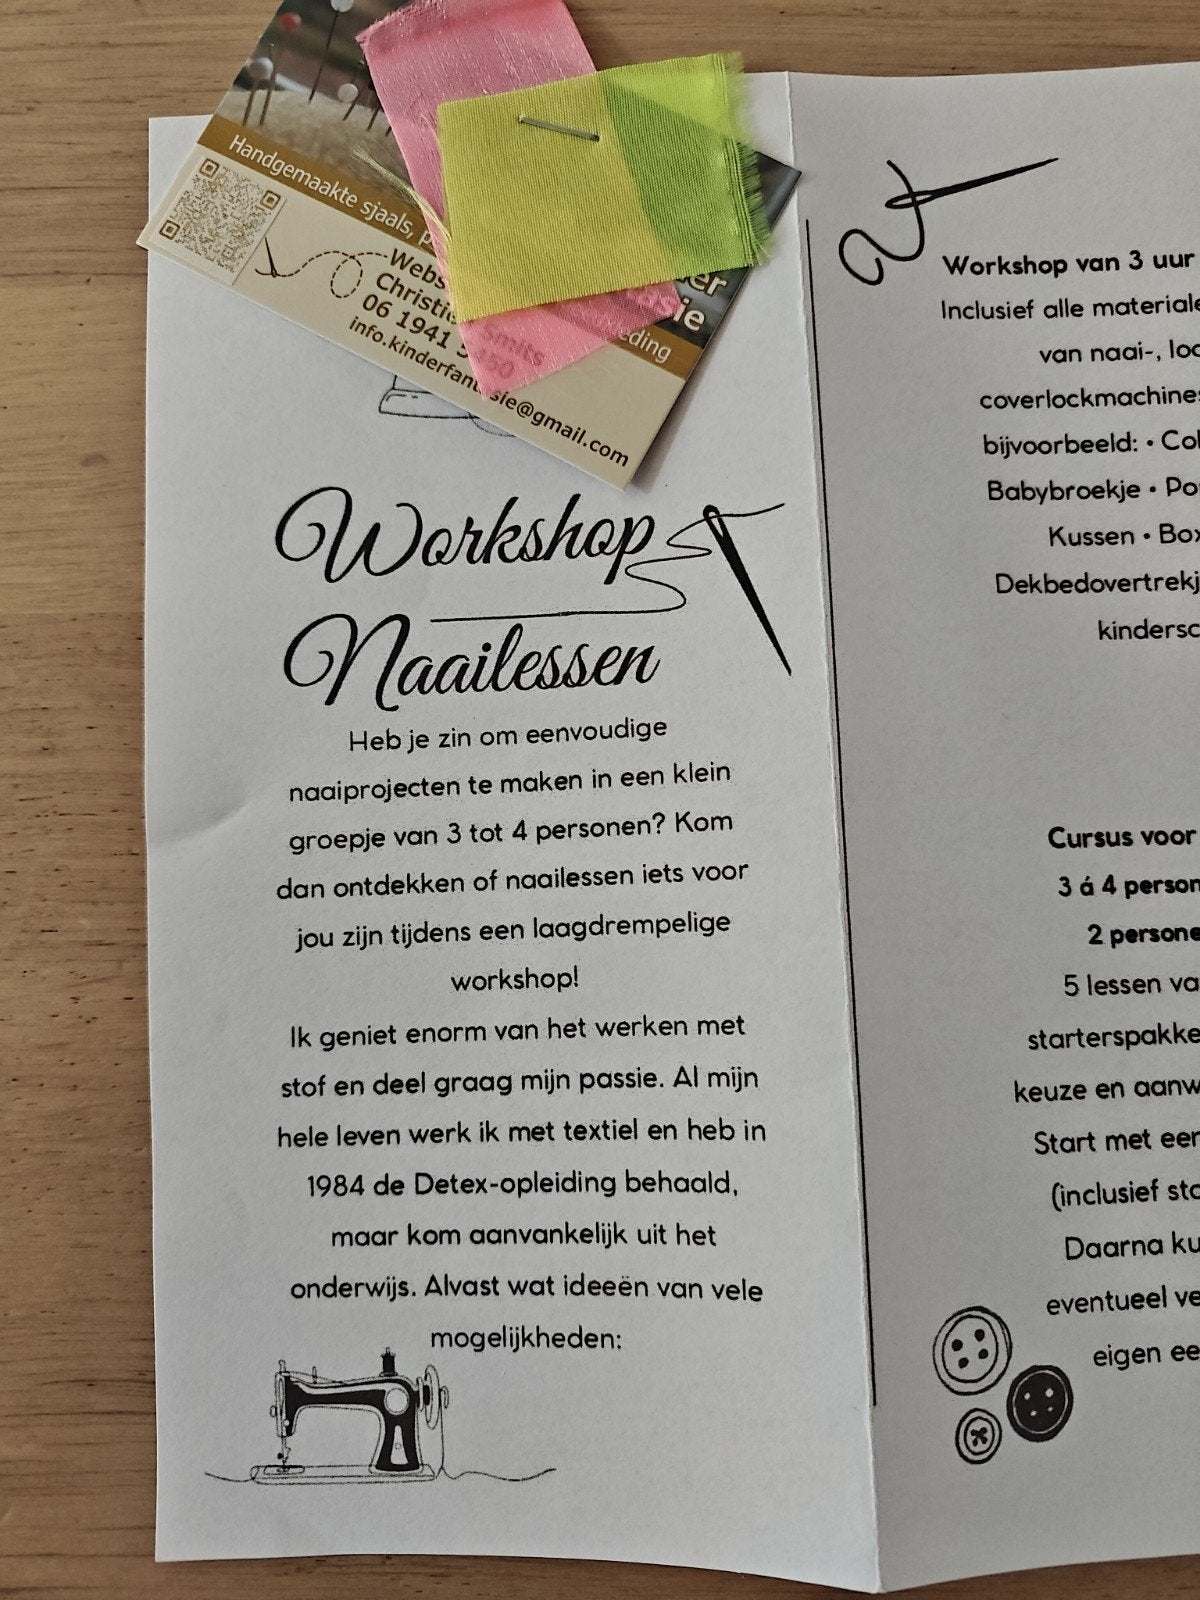 Handgemaakte sjaals,
Christie smits
06 1941
info.kinderfantasie@gmail.com
Workshop
Naailessen
Heb je zin om eenvoudige
naaiprojecten te maken in een klein
groepje van 3 tot 4 personen? Kom
dan ontdekken of naailessen iets voor
jou zijn tijdens een laagdrempelige
workshop!
Ik geniet enorm van het werken met
stof en deel graag mijn passie. Al mijn
hele leven werk ik met textiel en heb in
1984 de Detex-opleiding behaald,
maar kom aanvankelijk uit het
onderwijs. Alvast wat ideeën van vele
mogelijkheden:
Workshop van 3 uur
Inclusief alle materiale
van naai-, loc
coverlockmachines
bijvoorbeeld: • Col
Babybroekje • Po
Kussen • Box
Dekbedovertrekj
kindersc
Cursus voor
3 á 4 person
2 persone
5 lessen va
starterspakke
keuze en aanw
Start met een
(inclusief sto
Daarna ku
eventueel ve
eigen ee